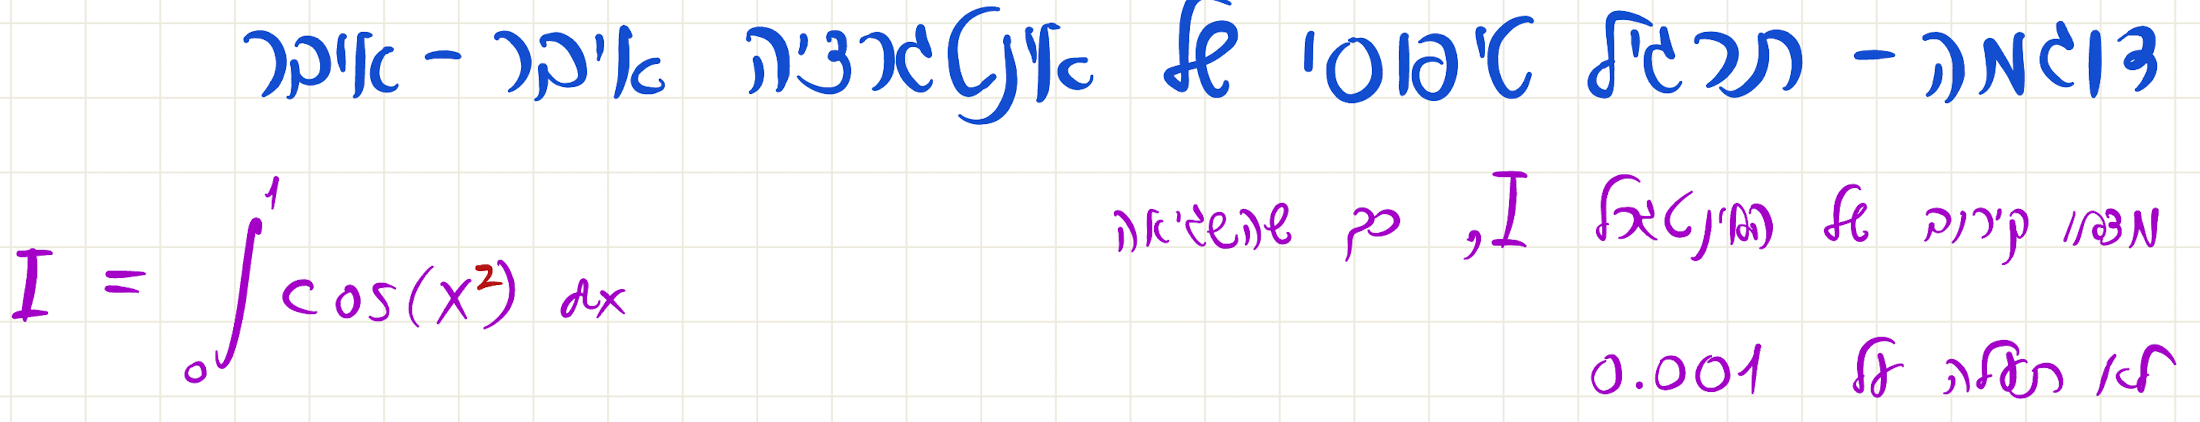 דוגמה - תרגיל טיפוסי של אינטגרציה איבר-איבר
מצאו קירוב של האינטגרל I, כך שהשגיאה
I = ∫₀¹ cos(x²) dx
לא תעלה על 0.001